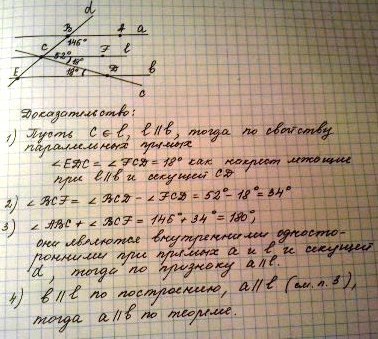 d
B A a
146°
C 52° F l
18°
E 18° D b
c
Доказательство:
1) Пусть C ∈ l, l∥b, тогда по свойству
параллельных прямых
∠EDC = ∠FCD = 18° как накрест лежащие
при l∥b и секущей CD
2) ∠BCF = ∠BCD - ∠FCD = 52° - 18° = 34°
3) ∠ABC + ∠BCF = 146° + 34° = 180°,
они являются внутренними односто-
ронними при прямых a и l и секущей
d, тогда по признаку a∥l.
4) b∥l по построению, a∥l (см. п. 3),
тогда a∥b по теореме.